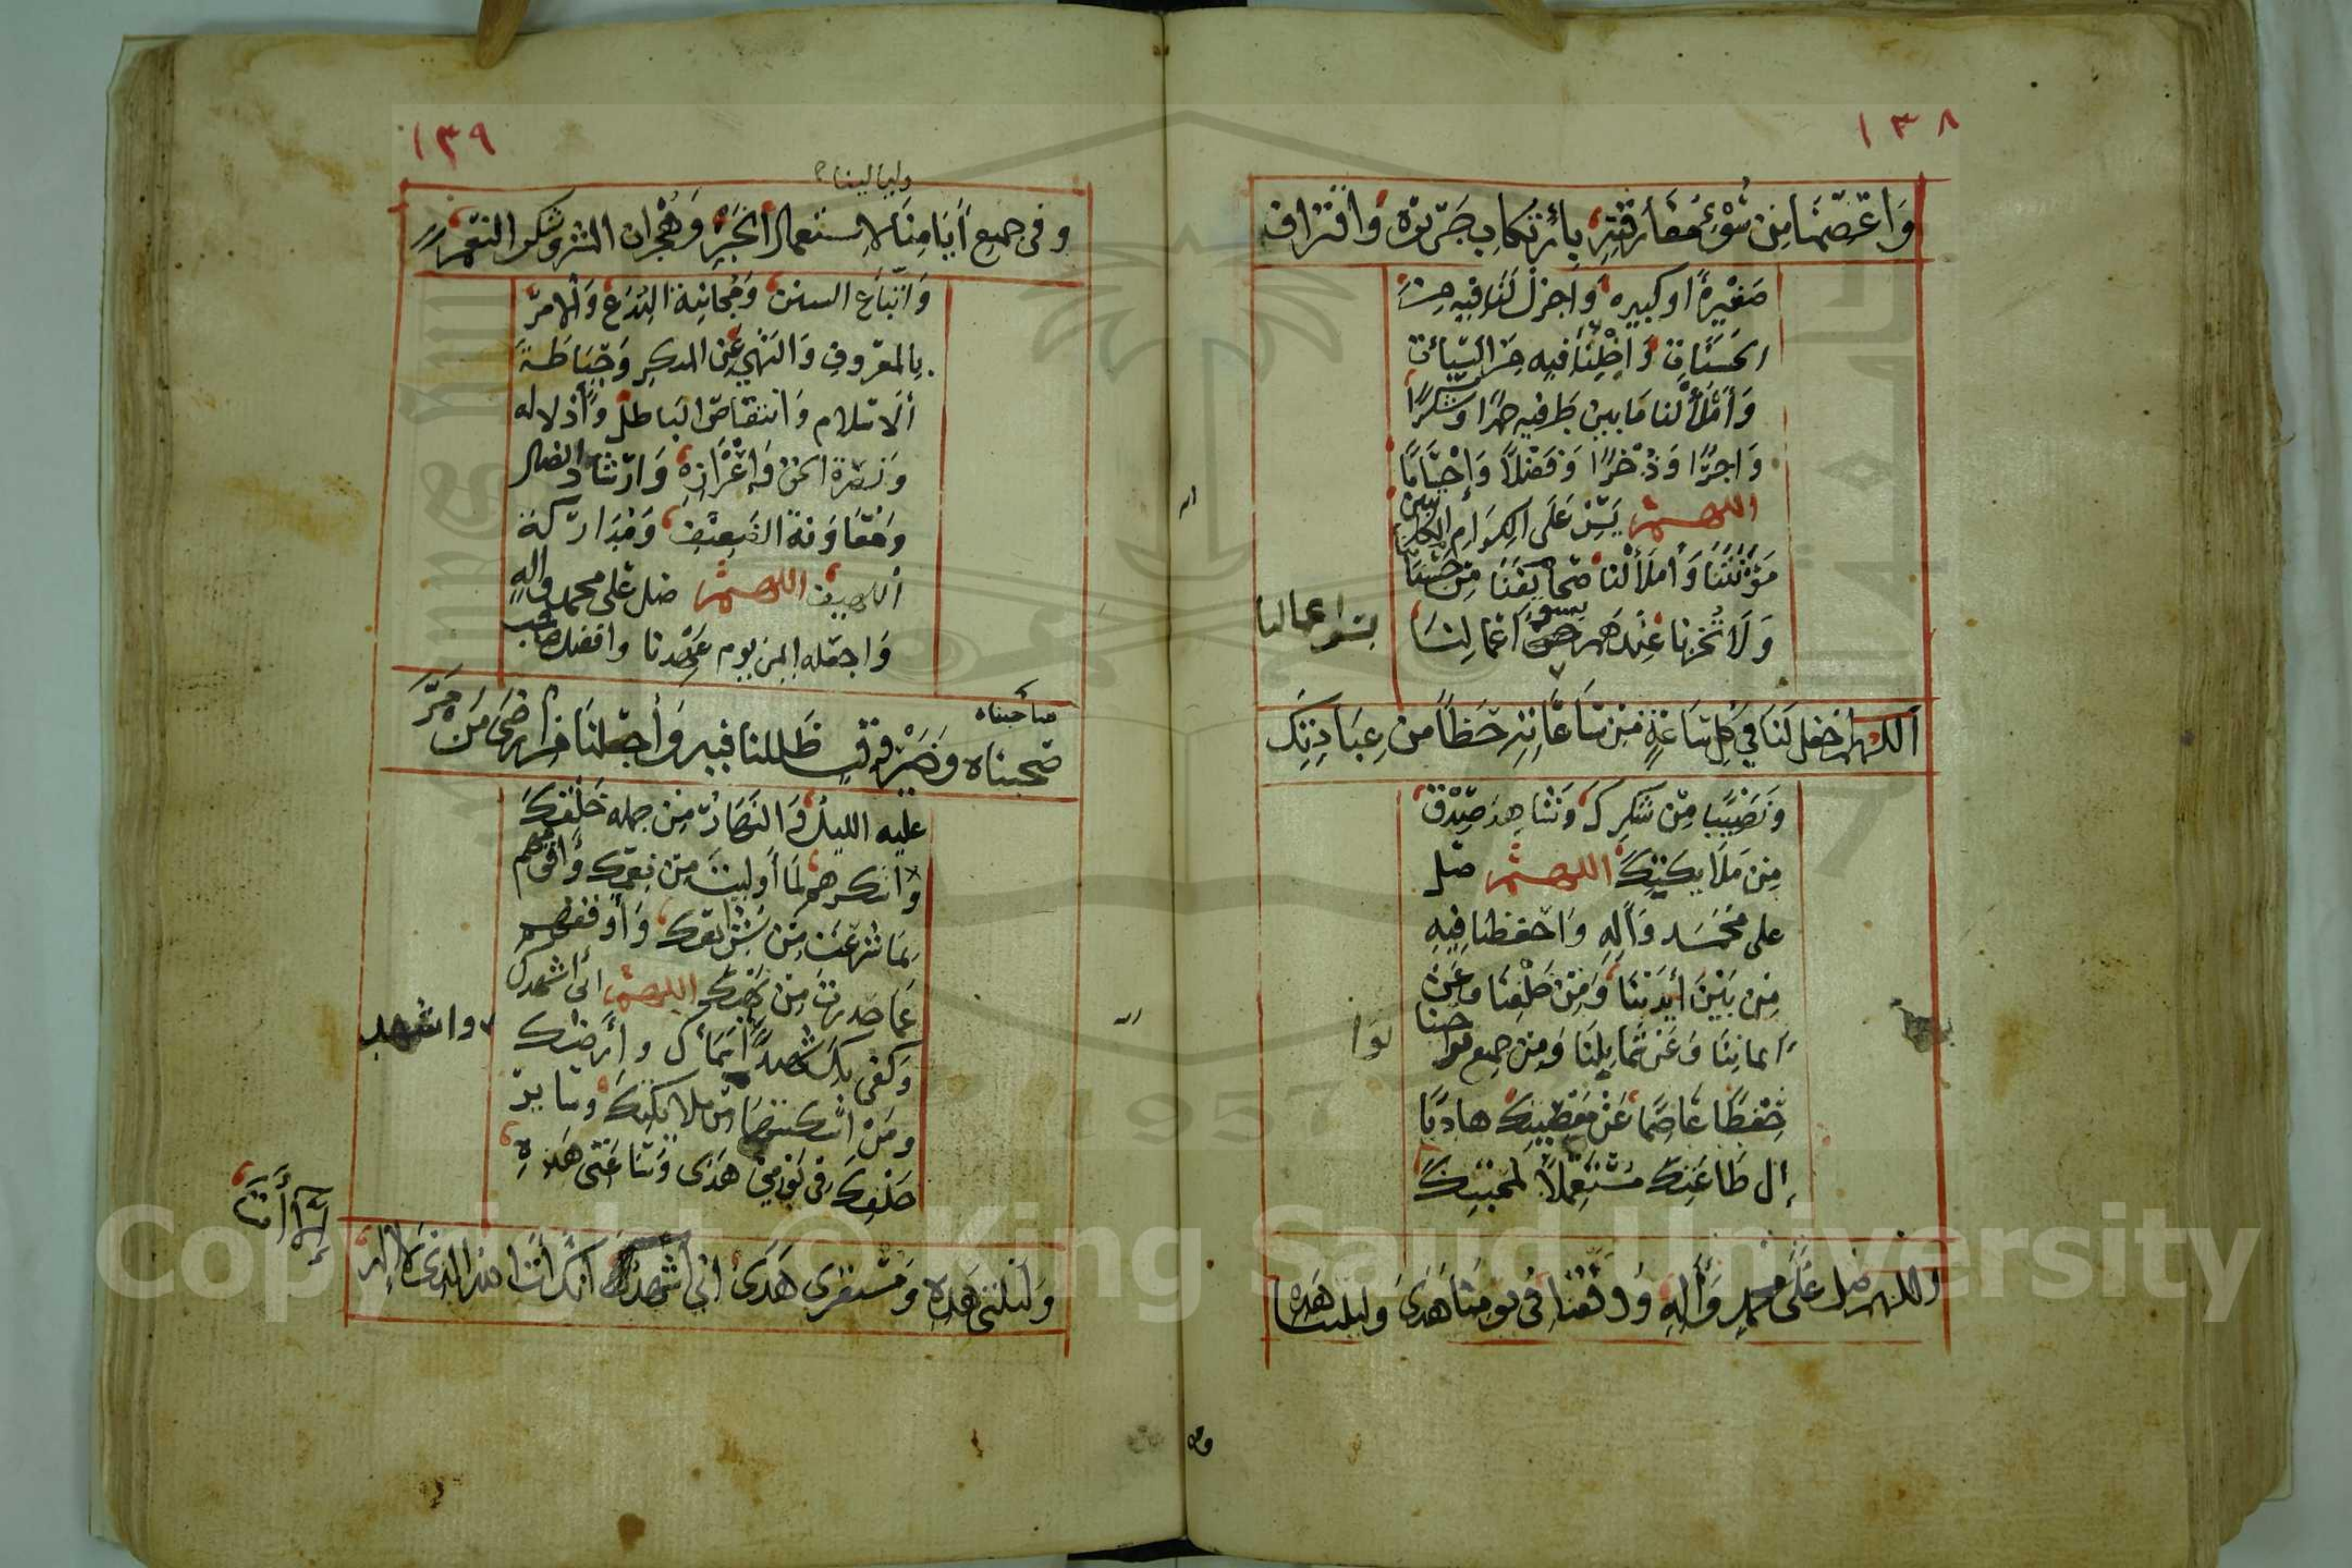 ١٣٨
وَاعْصِمْنَا مِنْ سُوْءِ مُفَارَقَتِهِ بِاِرْتِكَابِ جَرِيرَةٍ وَاقْتِرَافِ
صَغِيْرَةٍ او كبيرة وَاجزل لَنَا فيه مِنَ
الحَسَنَاتِ وَاَخْلِنَا فيه مِنَ السَّيِّئاتِ
وَامْلَأْ لنا مَا بين طَرفيه حمدًا وشكرًا
وَاجرًا وَذُخْرًا وَفَضْلًا وَاِحْسَانًا
اللهم يَسِّرْ عَلَى الكِرَامِ الكاتبين
مَؤُنَتَنَا وَاملَأْ لنا صَحَائِفَنَا مِنْ حَسَنَاتنا
وَلَا تُخْزِنا عِنْدَهم بسوء اَعْمَالِنَا
بسوا عمالنا
اللهم اجعل لَنَا فِي كُلِ سَاعَةٍ مِنْ سَاعَاتِهِ حَظًا مِنْ عِبَادِكَ
وَنَصِيْبًا مِنْ شكرِكَ وَشَاهِدَ صِدْقٍ
مِنْ مَلَائِكَتِكَ اللهم صَل
على مُحَمَّد وَآلِهِ وَاحفظنا فِيْهِ
مِنْ بَيْنِ أيْدِيْنَا وَمِنْ خَلْفِنَا وعَنْ
أيماننَا وَعَنْ شَمَايِلِنَا وَمِنْ جميع نواحينا
نوا
حِفْظًا عَاصِمًا عَنْ مَعْصِيَتِكَ هَادِيًا
إلى طَاعَتِكَ مُسْتَعْمِلًا لمحبَّتِكَ
اللهم صَلِ عَلَى محمدٍ وَآلِهِ وَوَفِّقْنَا فِى يَومِنَا هَذَى وَلَيلتنَا هَذِهِ
١٣٩
وليالينا
وفى جميع أيَّامِنَا لاستعمالِ الخَيْرِ وَهُجْران الشر وشكر النعم
وَاتِّبَاعِ السنن وَمُجَانَبَةِ البِدَعِ وَالامر
بالمعروفِ وَالنَّهْيِ عَنِ المنكرِ وَحِيَاطَةِ
الاسلام وَانتقاصِ البَاطل وَإذلاله
وَنصرة الحق وَاِعْزَازِهِ وَارشَاد الضال
وَمُعَاوَنَةِ الضَّعِيْفِ وَمُدَارَكَةِ
اللهيف اللهم صل على محمد وآله
وَاجعَله ايمن يوم عَهِدنا وافضل صاحب
صاحبناه
صحبناه وَخَيْرَ وَقْتٍ ظَلَلنا فيه وَاجعلنَا من اَرْضَى مَنْ مَرَّ
عليه الليلُ وَالنَهَارُ مِنْ جمله خَلْقِكَ
وَاشكرهم لِمَا أوليتَ مِنْ نِعَمِكَ وَاقومهم
بِمَا شَرَعْتَ مِنْ شَرَايِعِكَ وَأوقفهم
عَمَّا حذرتَ مِنْ نَهْيِكَ اللهم انى اشهدك
وَكفى بِكَ شَهِيدًا وأشهد سَمَاءكَ وأرضك
واشهد
ومَنْ اسكنتهمَا مِنْ ملائِكَتِكَ وَسَاير
خَلْقِكَ فى يَوْمِي هَذَى وَسَاعَتِى هَذِهِ
وَلَيْلَتِى هَذِهِ وَمُسْتَقَرى هَذَى انِّي اُشْهِدُكَ انَّكَ انتَ اللهُ الذِى لَا اله
إلَّا أنْتَ